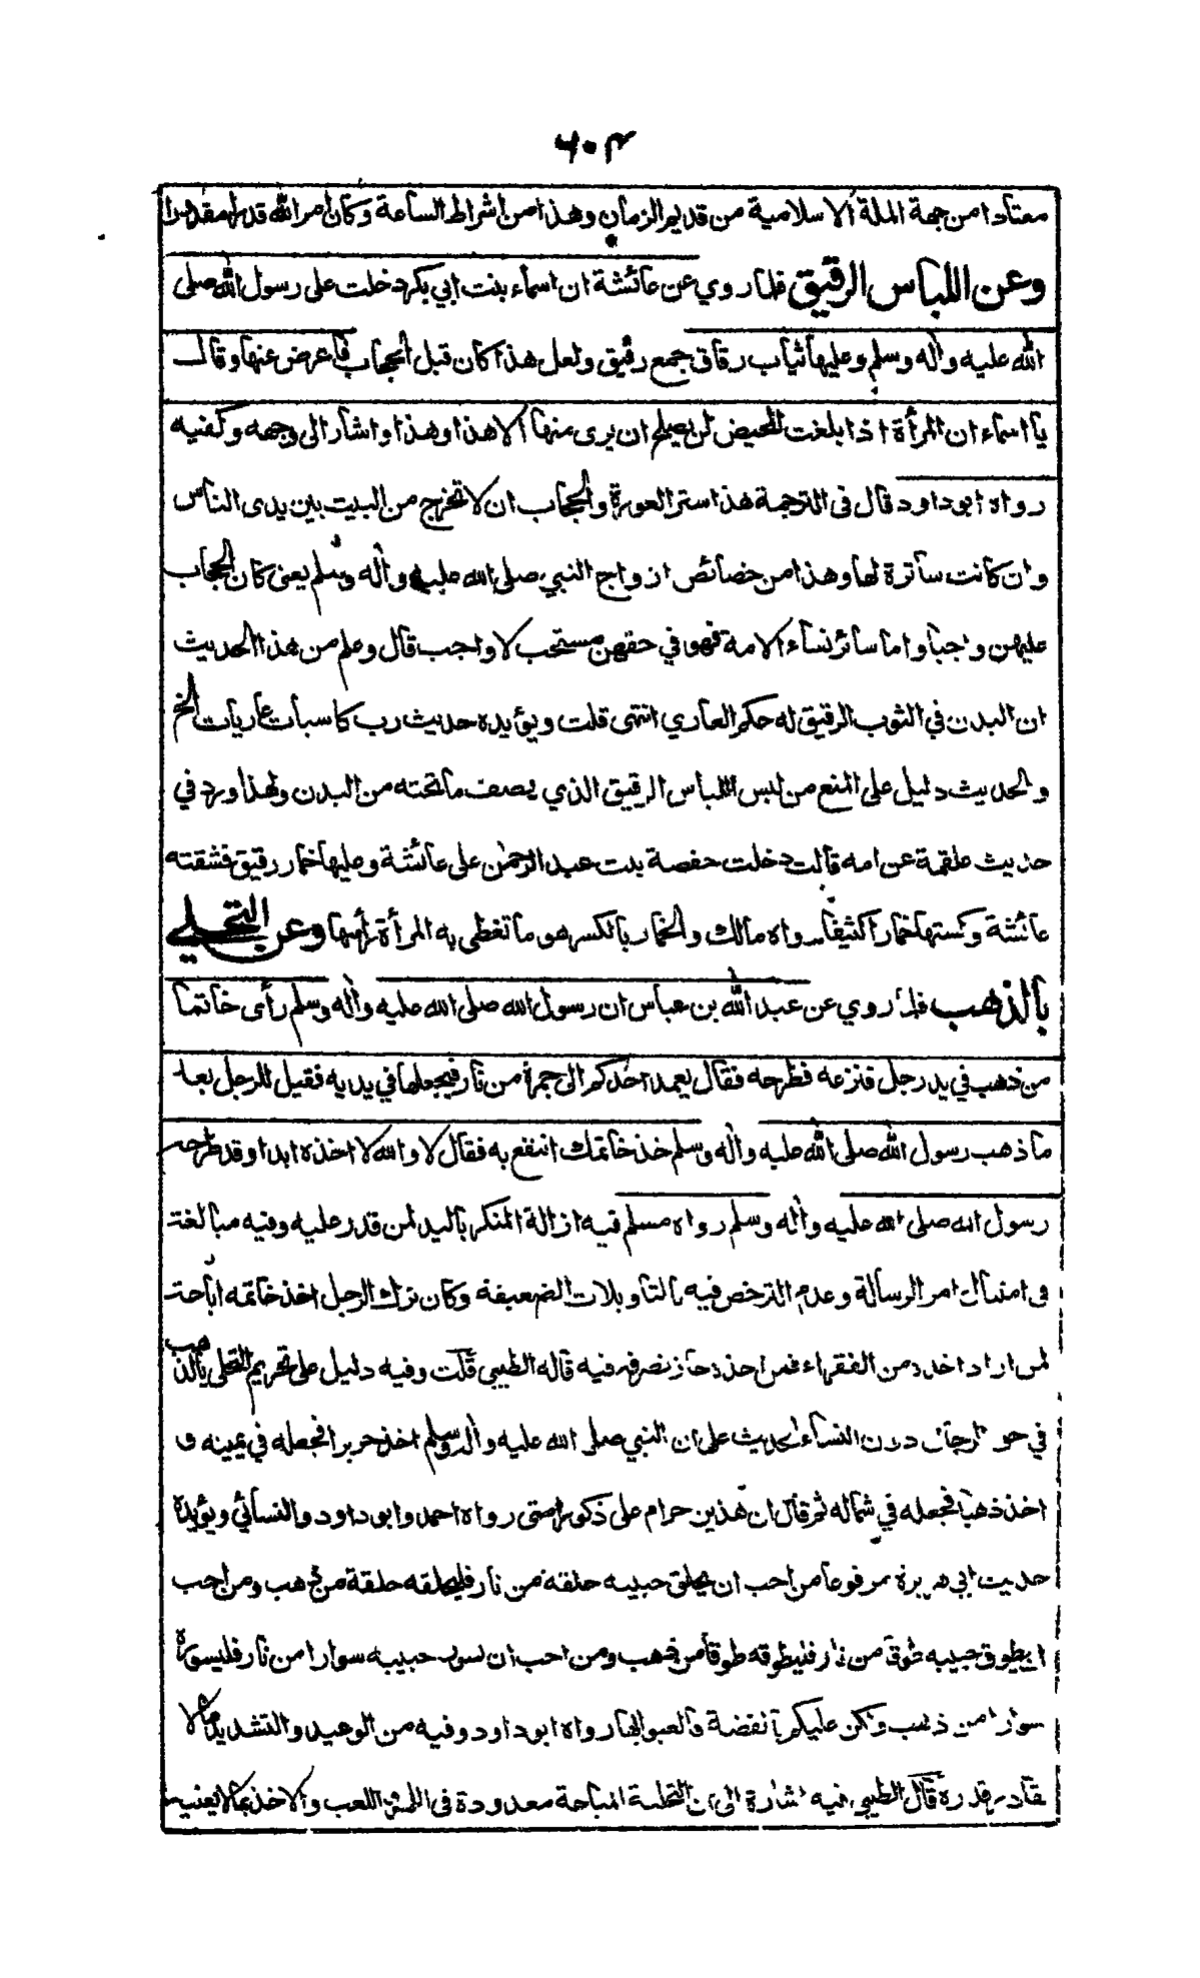 ٦٠٣
معتادا من جهة الملة الاسلامية من قديم الزمان وهذا من اشراط الساعة وكان امر الله قدرا مقدورا
وعن اللباس الرقيق فلما روي عن عائشة ان اسماء بنت ابي بكر دخلت على رسول الله صلى
الله عليه واله وسلم وعليها ثياب رقاق جمع رقيق ولعل هذا كان قبل الحجاب فأعرض عنها وقال
يا اسماء ان المرأة اذا بلغت المحيض لن يصلح ان يرى منها الا هذا وهذا واشار الى وجهه وكفيه
رواه ابوداود قال في الترجمة هذا ستر العورة والحجاب ان لا تخرج من البيت بين يدى الناس
وان كانت ساترة لها وهذا من خصائص ازواج النبي صلى الله عليه واله وسلم يعنى كان الحجاب
عليهن واجبا واما سائر نساء الامة فهو في حقهن مستحب لا واجب قال وعلم من هذا الحديث
ان البدن في الثوب الرقيق له حكم العاري انتهى قلت ويؤيده حديث رب كاسيات عاريات الخ
والحديث دليل على المنع من لبس اللباس الرقيق الذي يصف ما تحته من البدن ولهذا ورد في
حديث علقمة عن امه قالت دخلت حفصة بنت عبد الرحمن على عائشة وعليها خمار رقيق فشقته
عائشة وكستها خمارا كثيفا رواه مالك والخمار بالكسر هو ما تغطى به المرأة رأسها وعن التحلي
بالذهب فلما روي عن عبد الله بن عباس ان رسول الله صلى الله عليه واله وسلم رأى خاتما
من ذهب في يد رجل فنزعه فطرحه فقال يعمد احدكم الى جمرة من نار فيجعلها في يديه فقيل للرجل بعد
ما ذهب رسول الله صلى الله عليه واله وسلم خذ خاتمك انتفع به فقال لا والله لا اخذه ابدا وقد طرحه
رسول الله صلى الله عليه واله وسلم رواه مسلم فيه ازالة المنكر باليد لمن قدر عليه وفيه مبالغة
في امتثال امر الرسالة وعدم الترخص فيه بالتأويلات الضعيفة وكان ترك الرجل اخذ خاتمه اباحة
لمن اراد اخذه من الفقراء فمن اخذه جاز تصرفه فيه قاله الطيبي قلت وفيه دليل على تحريم التحلى بالذهب
في حق الرجال دون النساء لحديث على ان النبي صلى الله عليه واله وسلم اخذ حريرا فجعله في يمينه و
اخذ ذهبا فجعله في شماله ثم قال ان هذين حرام على ذكور امتى رواه احمد وابوداود والنسائي ويؤيده
حديث ابي هريرة مرفوعا من احب ان يحلق حبيبه حلقة من نار فليحلقه حلقة من ذهب ومن احب
ان يطوق حبيبه طوقا من نار فليطوقه طوقا من ذهب ومن احب ان يسور حبيبه سوارا من نار فليسوره
سوارا من ذهب ولكن عليكم بالفضة فالعبوا بها رواه ابوداود وفيه من الوعيد والتشديد ما لا
يقادر قدره قال الطيبي فيه اشارة الى ان التحلية المباحة معدودة في اللهو واللعب والاخذ بما لا يعنيه